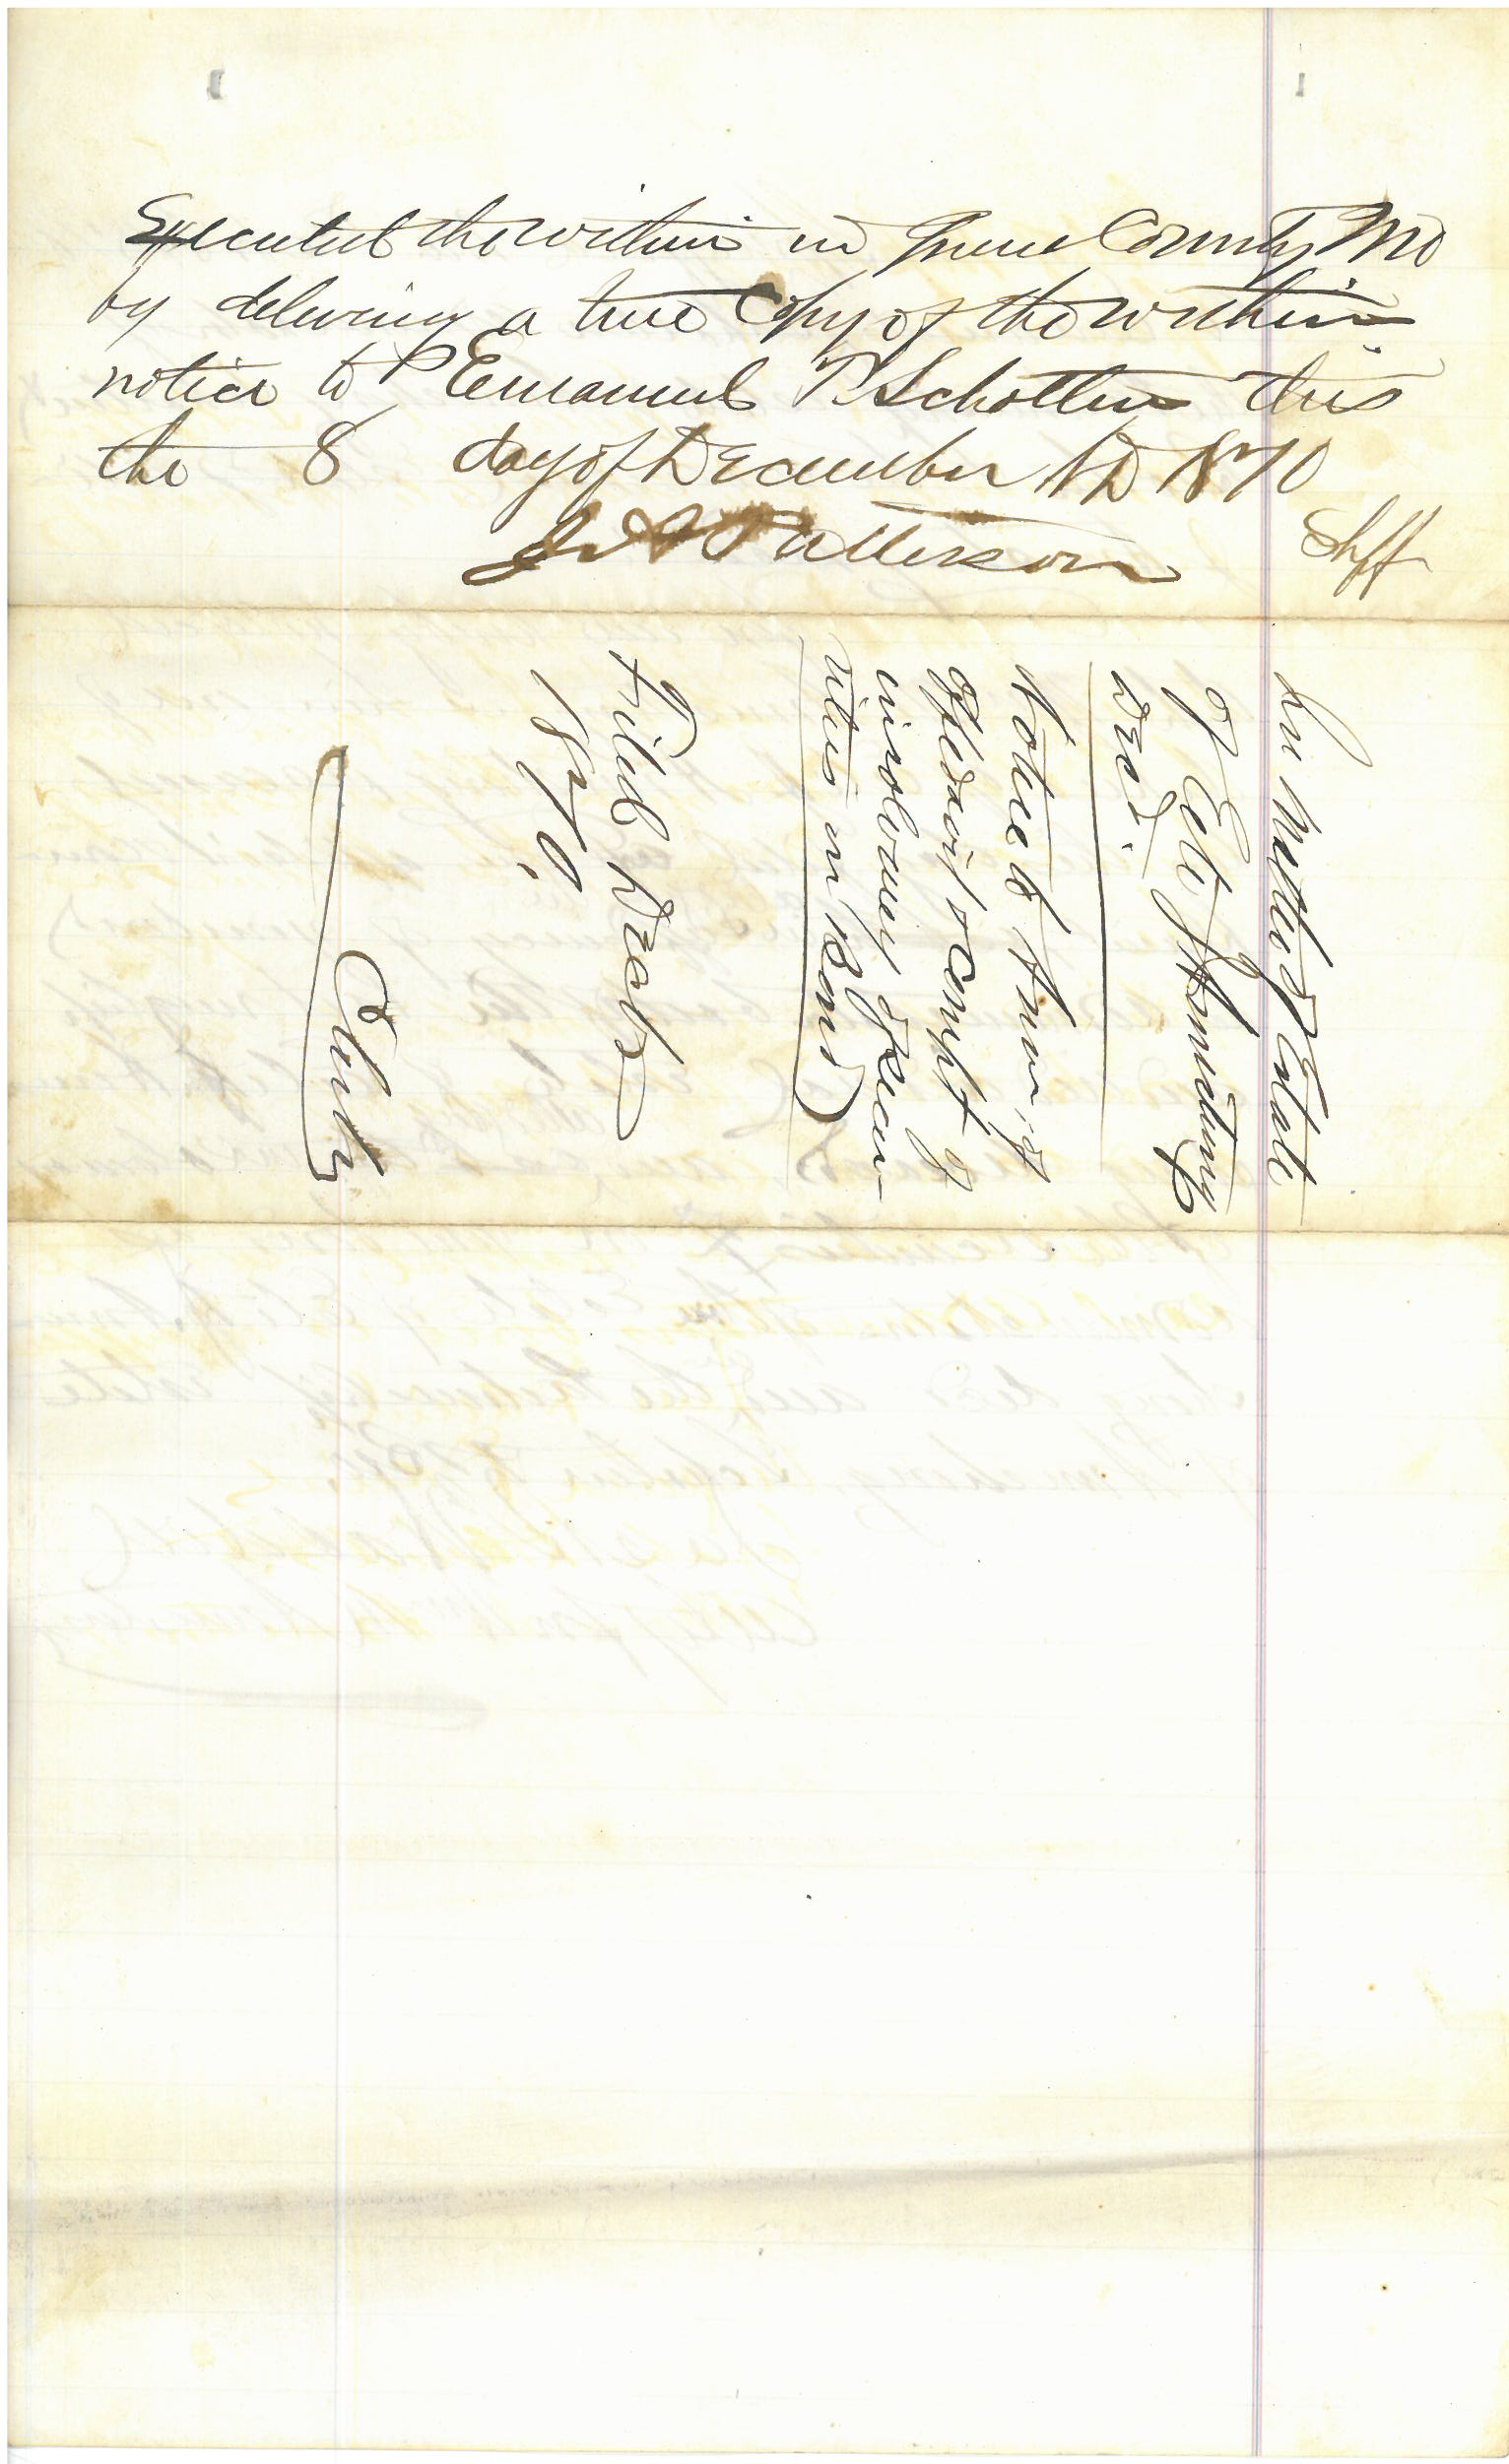 Executed the within in Greene County Mo
by delivering a true Copy of the within
notice to Emanuel T. Schotten this
the 8 day of December AD 1870
J A Patterson Shff
In Matter of Estate
of Eli Armentrout
Decd.
Notice to Admr, of
Affidavit & Compt of
insolvency of secur-
ities in Bond
Filed Dec
1870.
Clerk